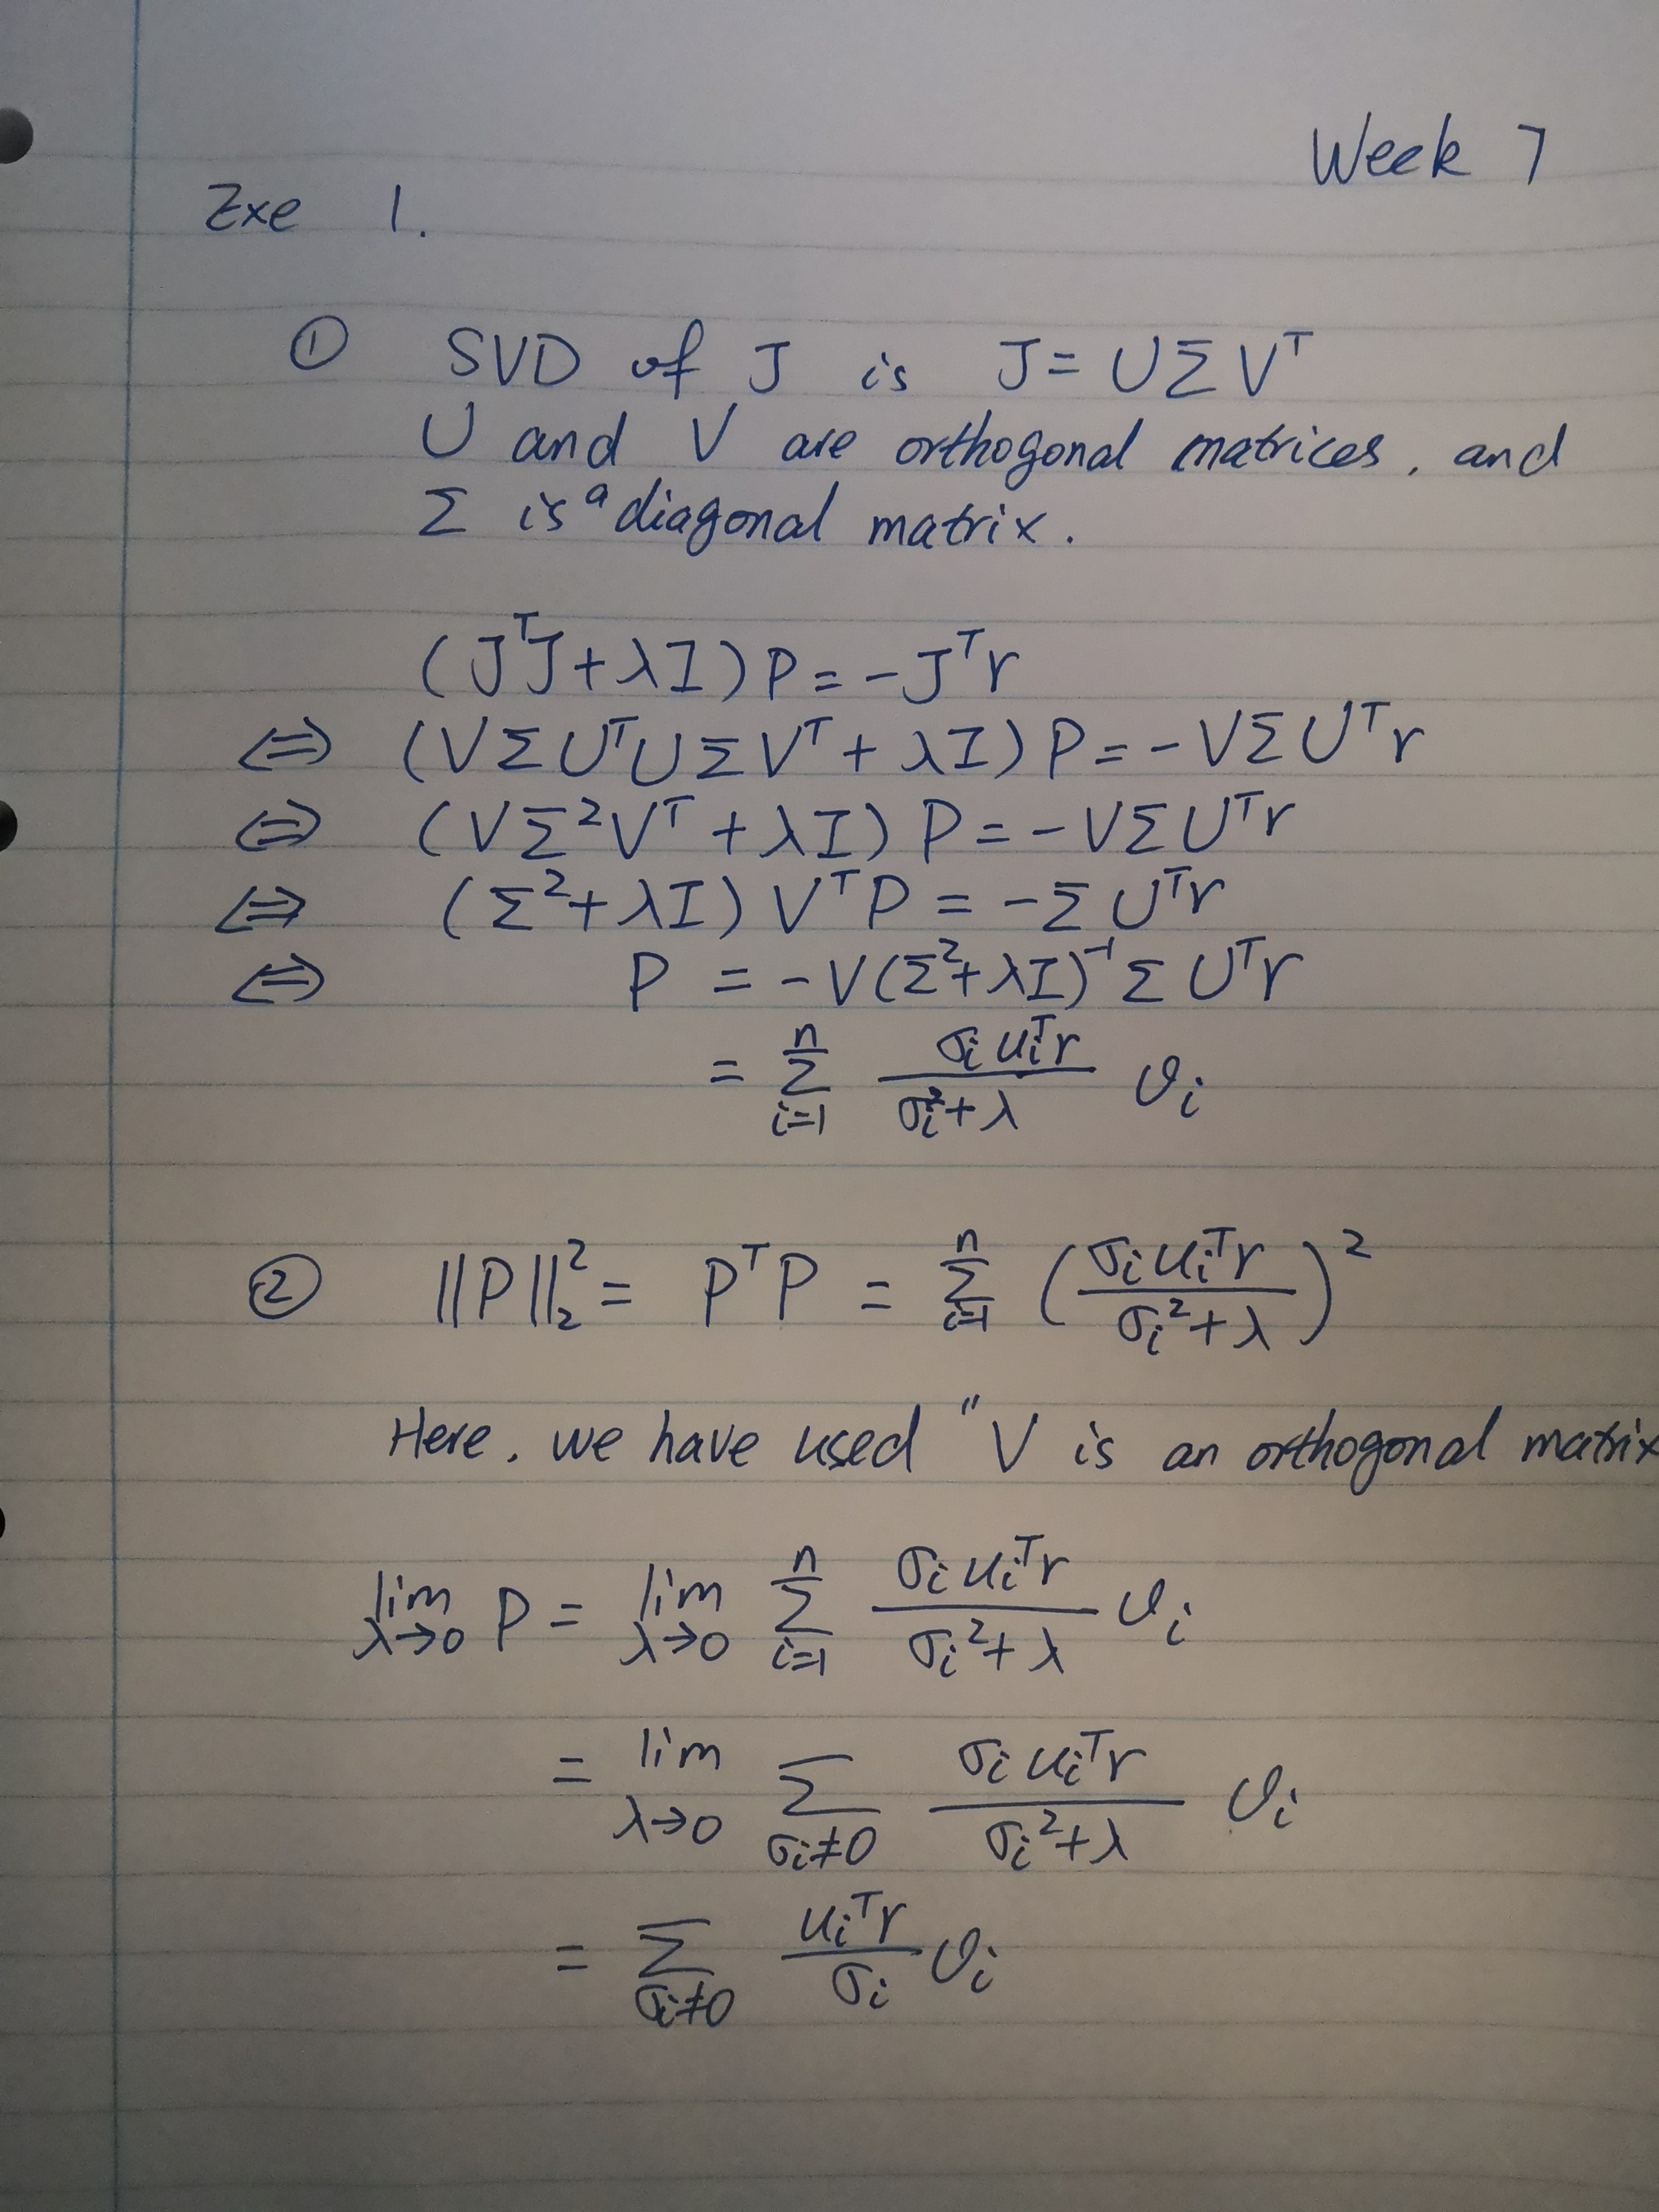 Week 7
Exe 1.
① SVD of J is J = UΣV^T
U and V are orthogonal matrices, and
Σ is a diagonal matrix.
(J^T J + λI) P = -J^T r
⇔ (VΣU^T UΣV^T + λI) P = -VΣU^T r
⇔ (VΣ²V^T + λI) P = -VΣU^T r
⇔ (Σ² + λI) V^T P = -ΣU^T r
⇔ P = -V(Σ² + λI)^-1 ΣU^T r
= Σ_{i=1}^{n} (σ_i u_i^T r)/(σ_i² + λ) v_i
② ||P||_2^2 = P^T P = Σ_{i=1}^{n} ((σ_i u_i^T r)/(σ_i² + λ))²
Here, we have used "V is an orthogonal matrix
lim_{λ→0} P = lim_{λ→0} Σ_{i=1}^{n} (σ_i u_i^T r)/(σ_i² + λ) v_i
= lim_{λ→0} Σ_{σ_i≠0} (σ_i u_i^T r)/(σ_i² + λ) v_i
= Σ_{σ_i≠0} (u_i^T r)/σ_i v_i